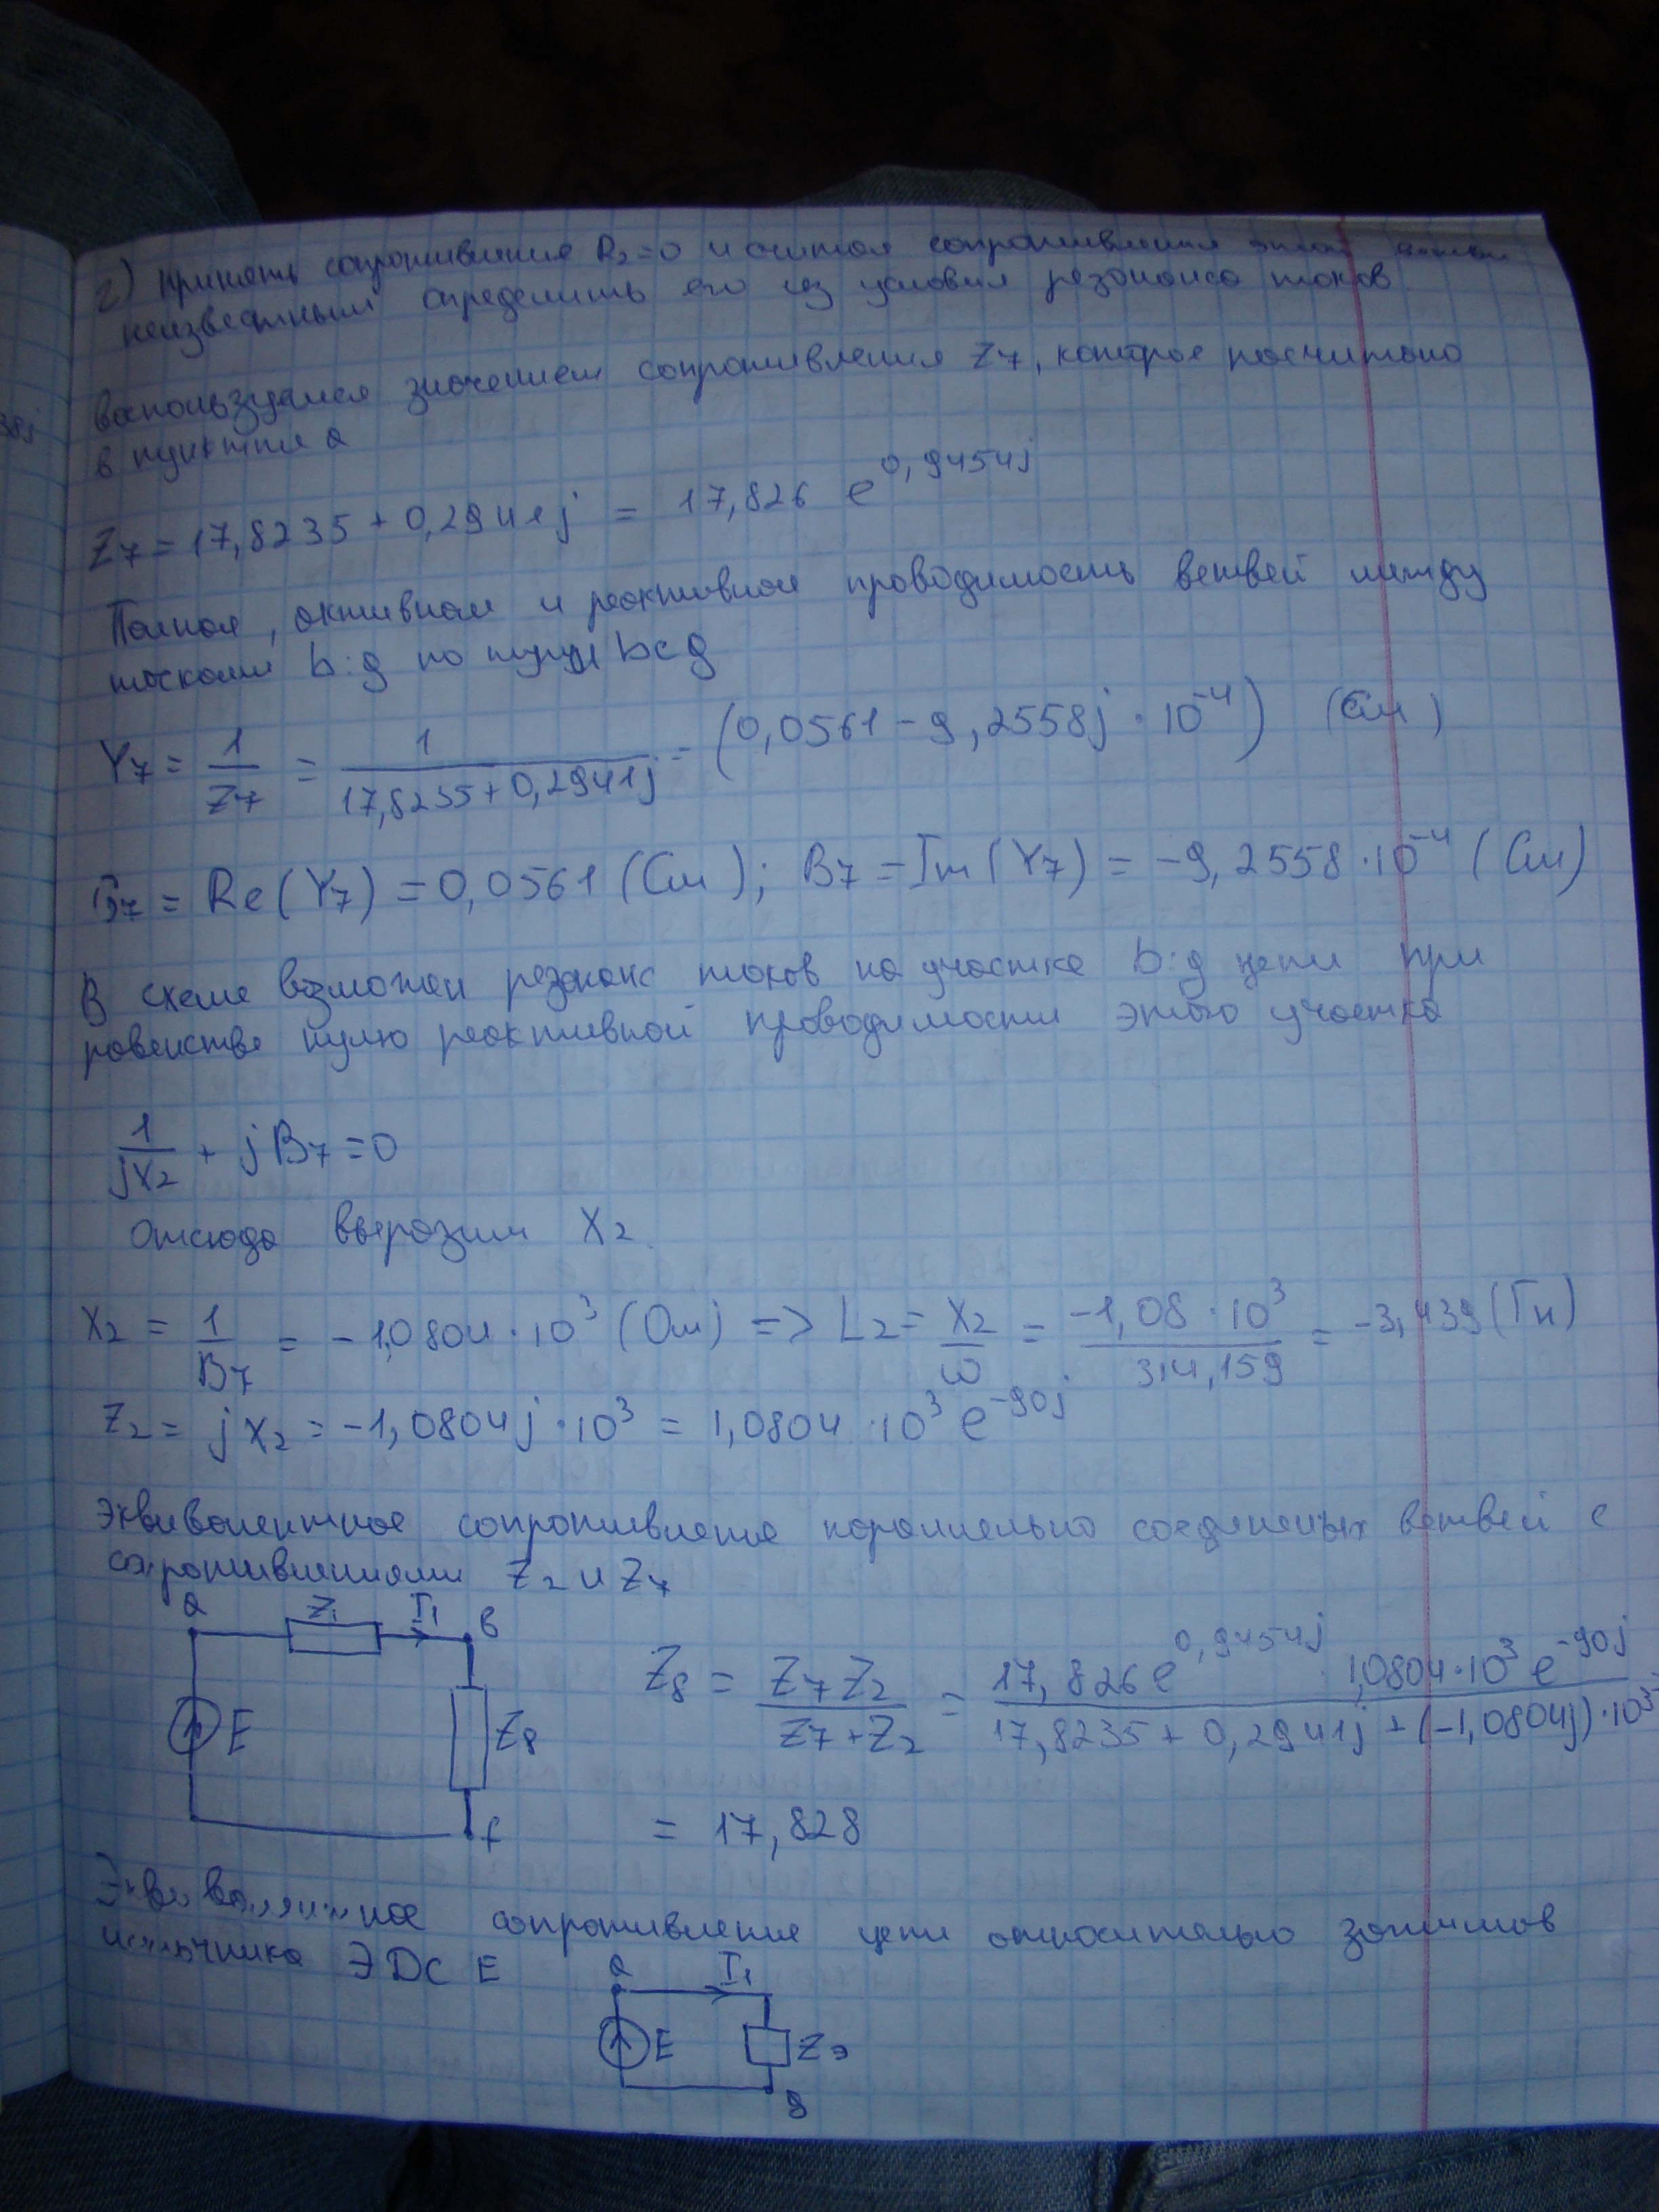 г) принять сопротивление R₂=0 и считая сопротивления
неизвестным определить его из условия резонанса токов
воспользуемся значением сопротивления Z₇, которое посчитано
в пункте а
Z₇ = 17,8235 + 0,2941j = 17,826 e^0,9454j
Полная, активная и реактивная проводимость ветвей между
точками b:g по пути bcg
Y₇ = 1/Z₇ = 1/(17,8235+0,2941j) = (0,0561 - 9,2558j · 10⁻⁴) (См)
G₇ = Re(Y₇) = 0,0561 (См); B₇ = Im(Y₇) = -9,2558 · 10⁻⁴ (См)
В схеме возможен резонанс токов на участке b:g цепи при
равенстве нулю реактивной проводимости этого участка
1/(jX₂) + jB₇ = 0
Отсюда выразим X₂
X₂ = 1/B₇ = -1,0804 · 10³ (Ом) => L₂ = X₂/ω = (-1,08 · 10³)/314,159 = -3,439 (Гн)
Z₂ = jX₂ = -1,0804j · 10³ = 1,0804 · 10³ e^-90j
Эквивалентное сопротивление паралельно соединеных ветвей с
сопротивлениями Z₂ и Z₇
a Z₁ I₁ b
E Z₈
f
Z₈ = Z₇Z₂/(Z₇+Z₂) = (17,826e^0,9454j · 1,0804·10³e^-90j)/(17,8235 + 0,2941j + (-1,0804j)·10³)
= 17,828
Эквивалентное сопротивление цепи относительно зажимов
источника ЭДС E
a I₁
E Zэ
g